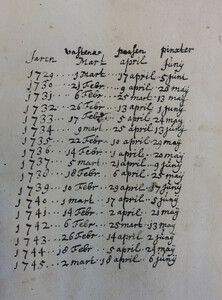 Jaren vastenav paasen pinxter
Mart april Junij
1729 . 1 Mart . 17 april . 5 Junij
1730 . 21 Febr . 9 april . 28 maij
1731 . 6 Febr . 25 mart . 13 maij
1732 . 26 Febr . 13 april . 1 Junij
1733 . 17 Febr . 5 april . 24 maij
1734 . 9 mart . 25 april . 13 Junij
1735 . 22 Febr . 10 april . 29 maij
1737 . 5 mart . 21 april . 9 Junij
1738 . 18 Febr . 6 april . 25 maij
1739 . 10 Febr . 29 april . 17 Junij
1740 . 1 mart . 17 april . 5 Junij
1741 . 14 Febr . 2 april . 21 maij
1742 . 6 Febr . 25 mart . 13 maij
1743 . 26 Febr . 14 april . 2 Junij
1744 . 18 Febr . 5 april . 24 maij
1745 . 2 mart . 18 april . 6 Junij